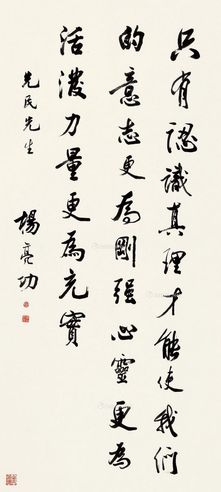 只有認識真理才能使我們
的意志更為剛強心靈更為
活潑力量更為充實
先民先生
楊亮功